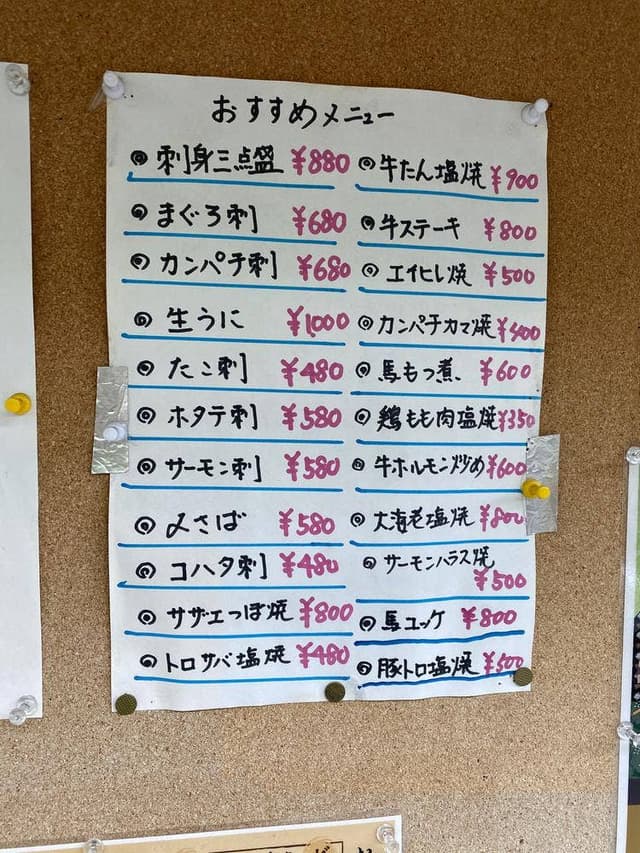 おすすめメニュー
◎刺身三点盛 ¥880
◎まぐろ刺 ¥680
◎カンパチ刺 ¥680
◎生うに ¥1000
◎たこ刺 ¥480
◎ホタテ刺 ¥580
◎サーモン刺 ¥580
◎〆さば ¥580
◎コハタ刺 ¥480
◎サザエつぼ焼 ¥800
◎トロサバ塩焼 ¥480
◎牛たん塩焼 ¥900
◎牛ステーキ ¥800
◎エイヒレ焼 ¥500
◎カンパチカマ焼 ¥400
◎馬もつ煮 ¥600
◎鶏もも肉塩焼 ¥350
◎牛ホルモン炒め ¥600
◎大海老塩焼 ¥800
◎サーモンハラス焼
¥500
◎馬ユッケ ¥800
◎豚トロ塩焼 ¥500